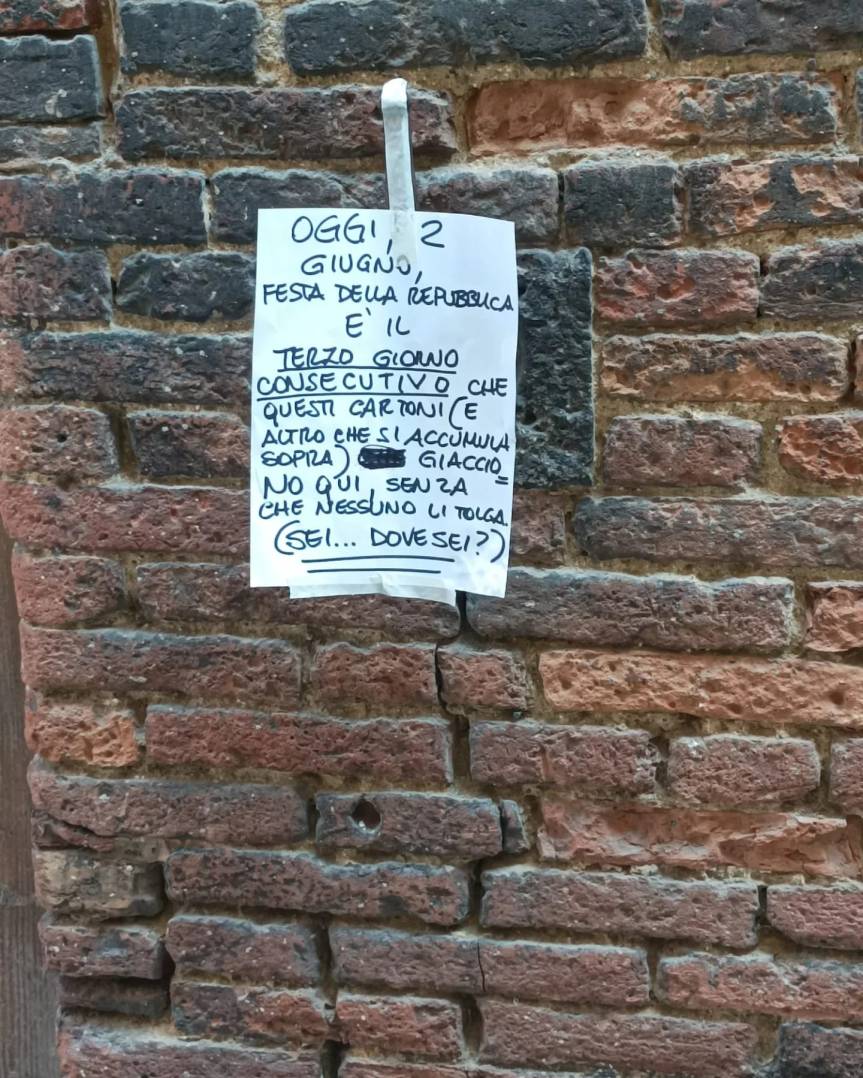 OGGI, 2
GIUGNO,
FESTA DELLA REPUBBLICA
E' IL
TERZO GIORNO
CONSECUTIVO CHE
QUESTI CARTONI (E
ALTRO CHE SI ACCUMULA
SOPRA) GIACCIO=
NO QUI, SENZA
CHE NESSUNO LI TOLGA.
(SEI... DOVE SEI?)